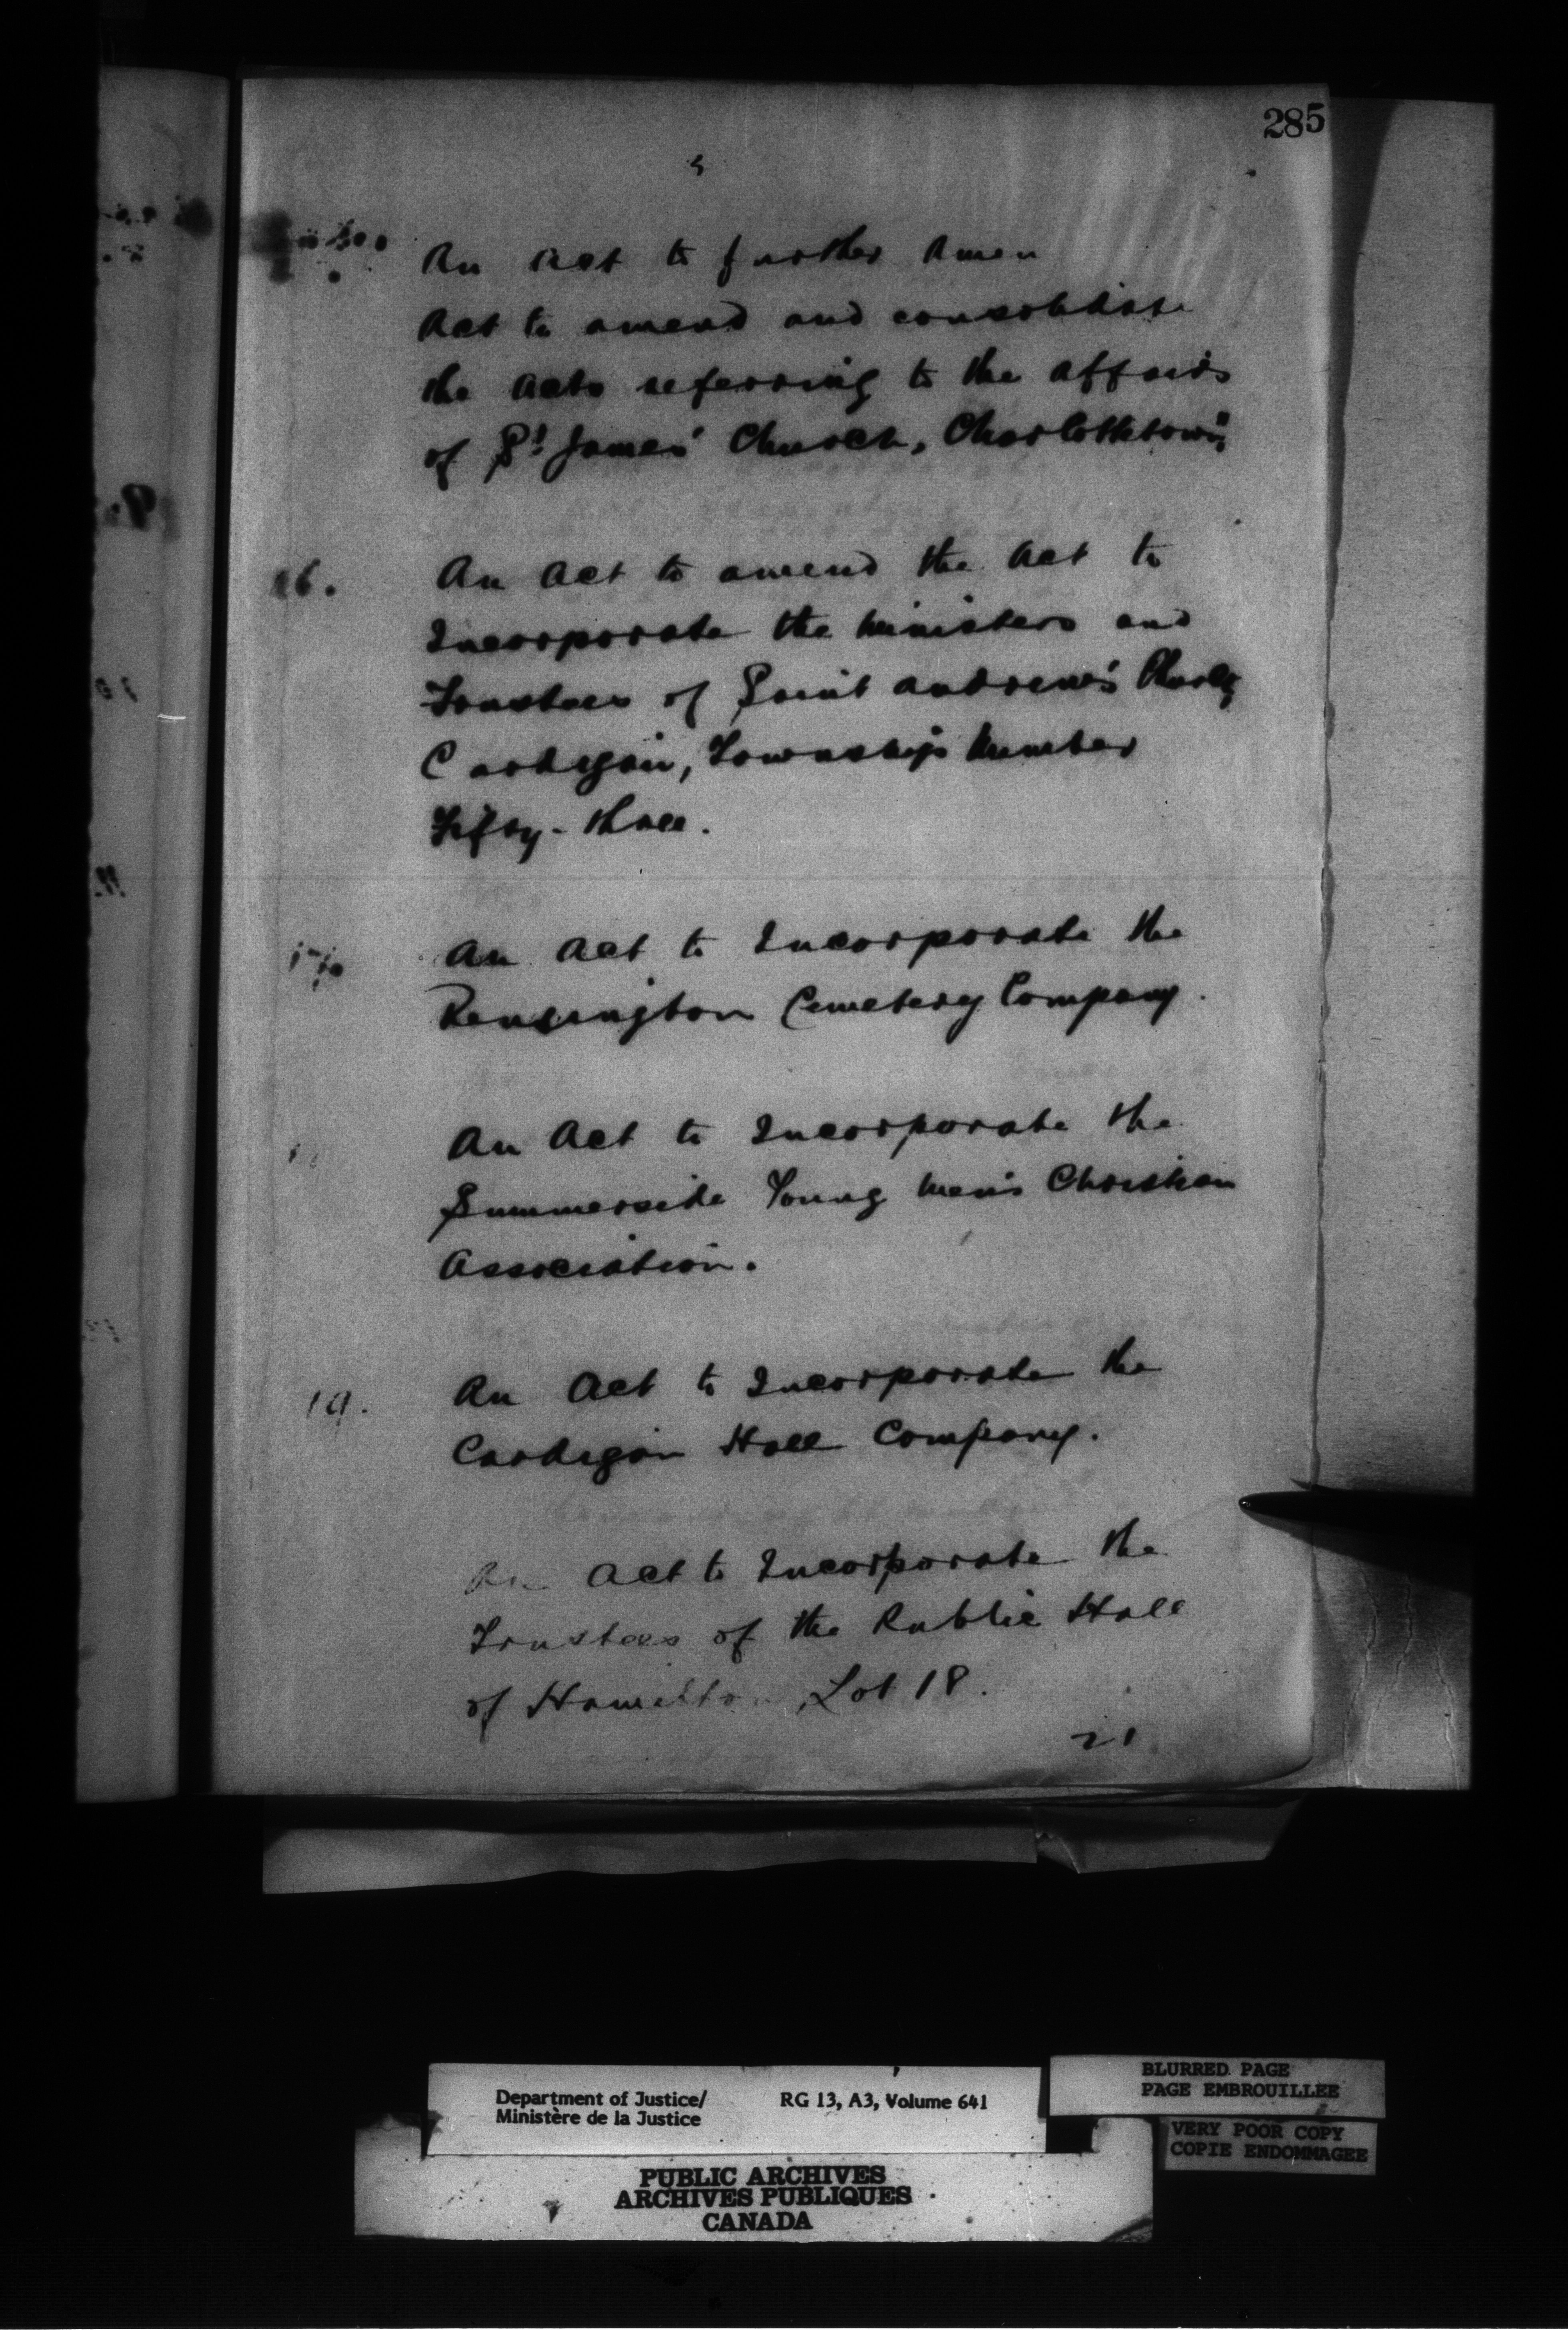 285
An Act to further Amen
Act to amend and consolidate
the Acts referring to the affairs
of St James' Church, Charlottetown"
16. An Act to amend the Act to
Incorporate the Ministers and
Trustees of Saint Andrew's Church
Cardigan, Township Number
Fifty-three.
An Act to Incorporate the
Kensington Cemetery Company.
An Act to Incorporate the
Summerside Young Men's Christian
Association.
19. An Act to Incorporate the
Cardigan Hall Company.
An Act to Incorporate the
Trustees of the Public Hall
of Hamilton, Lot 18.
21
Department of Justice/
Ministère de la Justice
RG 13, A3, Volume 641
BLURRED PAGE
PAGE EMBROUILLEE
VERY POOR COPY
COPIE ENDOMMAGEE
PUBLIC ARCHIVES
ARCHIVES PUBLIQUES
CANADA